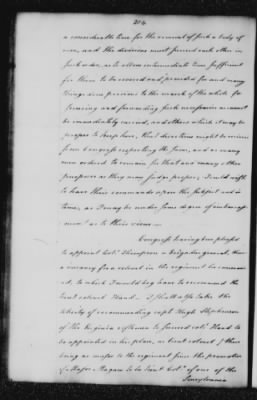 204
a considerable time for the removal of such a body of
men, and the divisions must proceed each other in
such order, as to allow intermediate time sufficient
for them to be covered and provided for and many
things done previous to the march of the whole for
securing and forwarding such necessaries as must
be immediately carried, and others which it may be
proper to keep here, that directions might be received
from Congress respecting the same, and as many
men ordered to remain for that and many other
purposes as they may judge proper; I could wish
to have their commands upon the subject and in
time, as I may be under some degree of embarrass-
ment as to their views.—
Congress having been pleased
to appoint Colo. Thompson a brigadier general, there is
a vacancy for a colonel in the regiment he command-
ed, to which I would beg leave to recommend the
lieut colonel Hand— I shall also take the
liberty of recommending capt Hugh Stephenson
of the Virginia riflemen to succeed colo. Hand &
be appointed in his place, as lieut colonel, (there
being no major to the regiment since the promotion
of Major Magaw to be lieut Colo. of one of the
Pennsylvania